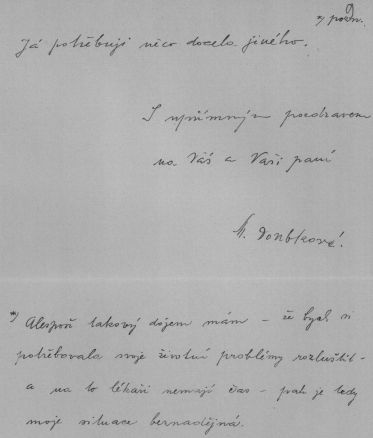 *) pozn.
9
Já potřebuji něco docela jiného.
S upřímným pozdravem
na Vás a Vaši paní
M. Doubková!
*) Alespoň takový dojem mám – že bych si
potřebovala svoje životní problémy rozluštit –
a na to lékaři nemají čas – pak je tedy
moje situace beznadějná.